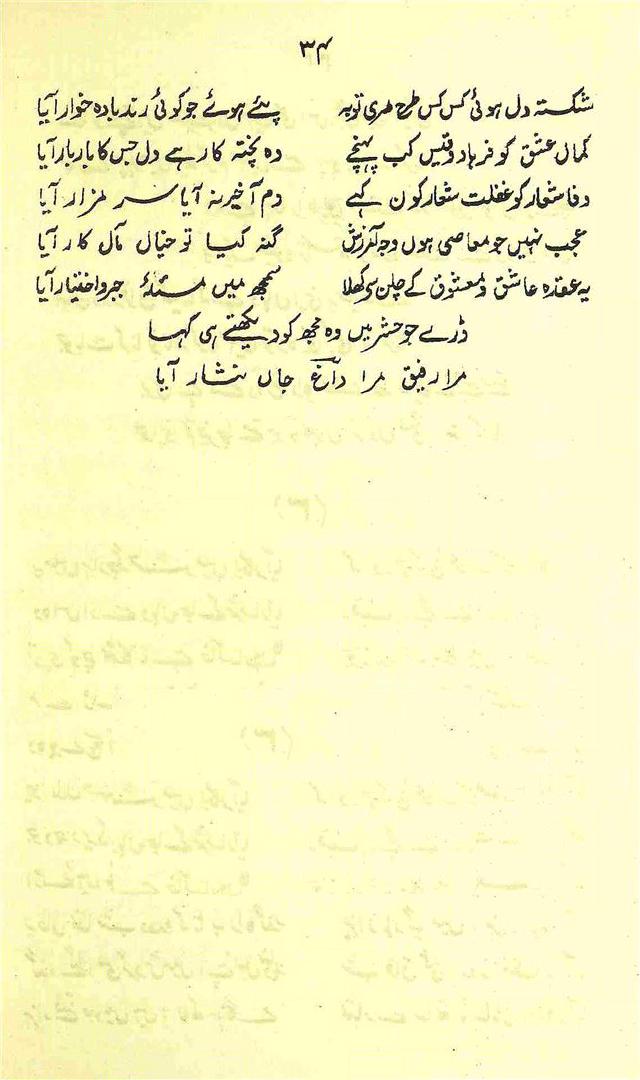 ۳۴
شکستہ دل ہوئی کس کس طرح مری توبہ پئے ہوئے جو کوئی رند بادہ خوار آیا
کمال عشق کو فرہاد و قیس کب پہنچے وہ پختہ کار ہے دل جس کا بار بار آیا
وفا شعار کو غفلت شعار کون کہے دم آخیر نہ آیا سر مزار آیا
عجب نہیں جو معاصی ہوں وجہ آمرزش گنہ کیا تو خیال مآل کار آیا
یہ عقدہ عاشق و معشوق کے چلن سے کھلا سمجھ میں مسئلۂ جبر و اختیار آیا
ڈرے جو حشر میں وہ مجھ کو دیکھتے ہی کہا
مرا رفیق مرا داغ جاں نثار آیا